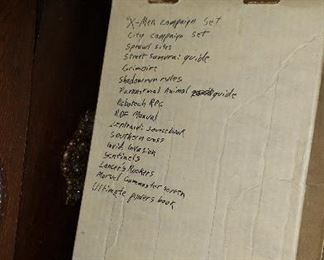 X-Men campaign set
City campaign set
Sprawl sites
Street samurai guide
Grimoire
Shadowrun rules
Paranormal Animal guide
Robotech RPG
RDF Manual
Zentraedi sourcebook
Southern cross
Invid Invasion
Sentinels
Lancer's Rockers
Marvel Gamemaster screen
Ultimate powers book